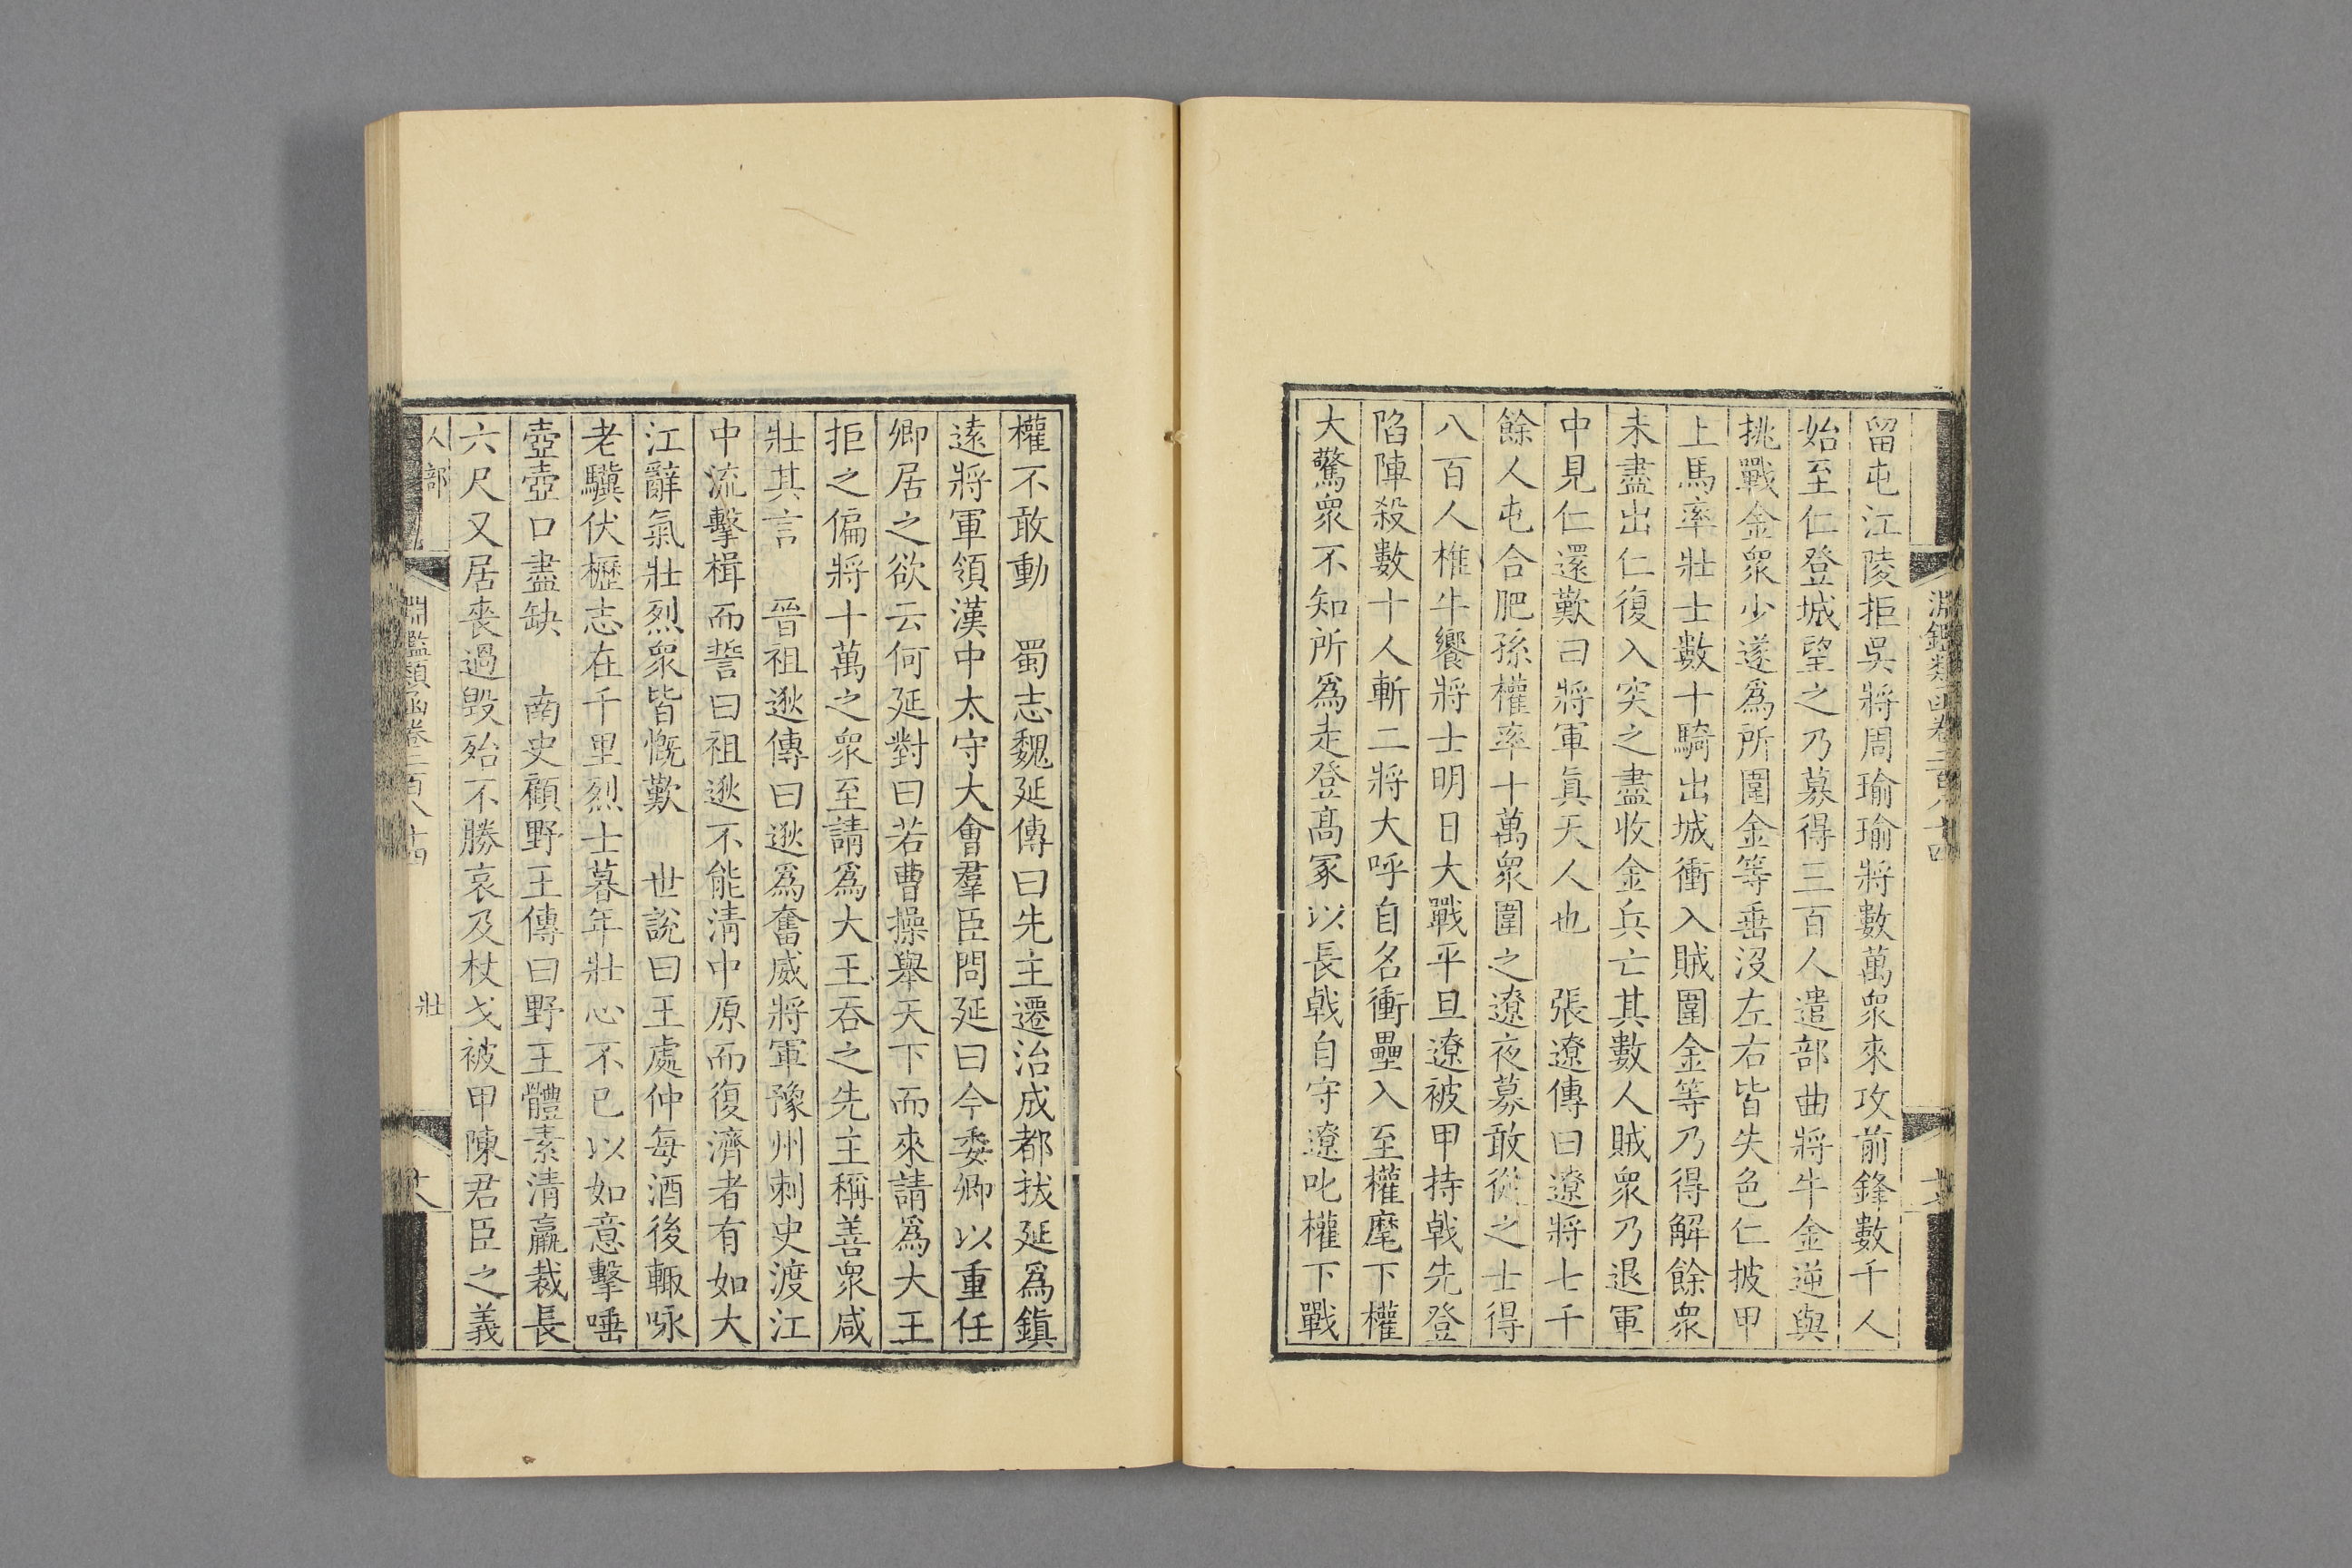 留屯江陵拒吳將周瑜瑜將數萬眾來攻前鋒數千人
始至仁登城望之乃募得三百人遣部曲將牛金逆與
挑戰金眾少遂爲所圍金等垂沒左右皆失色仁披甲
上馬率壯士數十騎出城衝入賊圍金等乃得解餘眾
未盡出仁復入突之盡收金兵亡其數人賊眾乃退軍
中見仁還歎曰將軍真天人也　張遼傳曰遼將七千
餘人屯合肥孫權率十萬眾圍之遼夜募敢從之士得
八百人椎牛饗將士明日大戰平旦遼被甲持戟先登
陷陣殺數十人斬二將大呼自名衝壘入至權麾下權
大驚眾不知所爲走登高冢以長戟自守遼叱權下戰
權不敢動　蜀志魏延傳曰先主遷治成都拔延爲鎮
遠將軍領漢中太守大會羣臣問延曰今委卿以重任
卿居之欲云何延對曰若曹操舉天下而來請爲大王
拒之偏將十萬之眾至請爲大王吞之先主稱善眾咸
壯其言　晉祖逖傳曰逖爲奮威將軍豫州刺史渡江
中流擊楫而誓曰祖逖不能清中原而復濟者有如大
江辭氣壯烈眾皆慨歎　世說曰王處仲每酒後輒咏
老驥伏櫪志在千里烈士暮年壯心不已以如意擊唾
壺壺口盡缺　南史顧野王傳曰野王體素清羸裁長
六尺又居喪過毀殆不勝哀及杖戈被甲陳君臣之義
人部
淵鑑類函卷二百八十四
壯